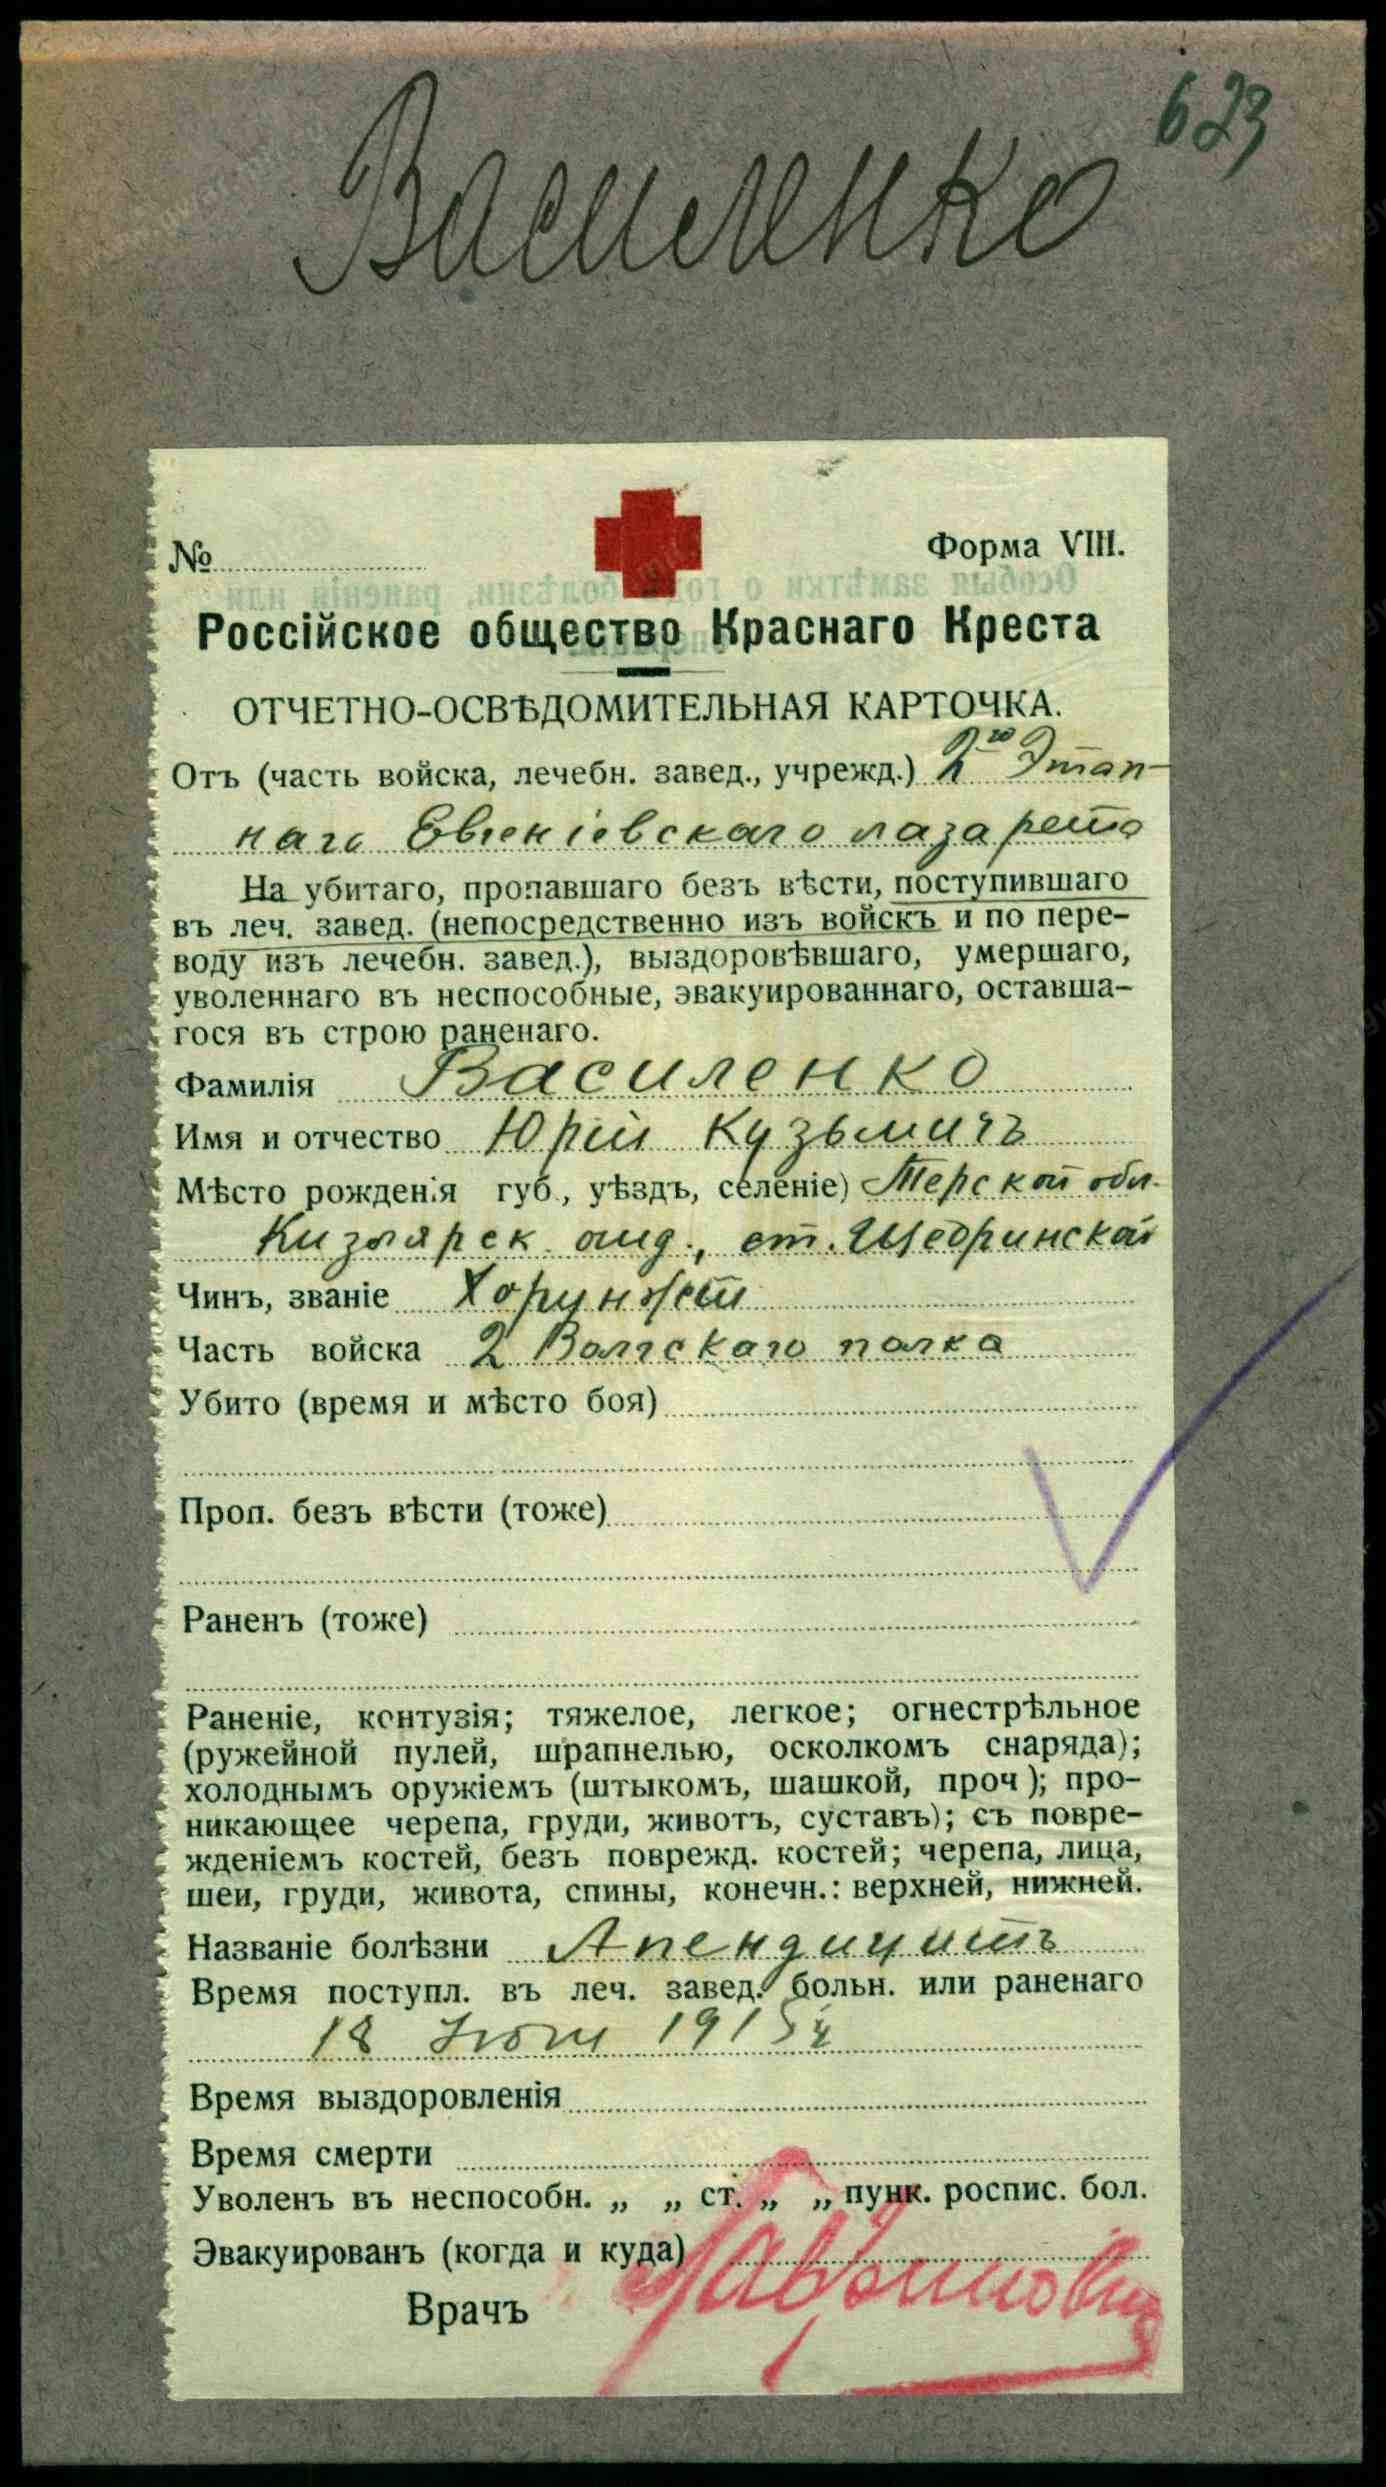 623
Василенко
№
Форма VIII.
Россійское общество Краснаго Креста
ОТЧЕТНО-ОСВѢДОМИТЕЛЬНАЯ КАРТОЧКА.
Отъ (часть войска, лечебн. завед., учрежд.) 2го Этап-
наго Евгеніевскаго лазарета
На убитаго, пропавшаго безъ вѣсти, поступившаго
въ леч. завед. (непосредственно изъ войскъ и по пере-
воду изъ лечебн. завед.), выздоровѣвшаго, умершаго,
уволеннаго въ неспособные, эвакуированнаго, оставша-
гося въ строю раненаго.
Фамилія Василенко
Имя и отчество Юрій Кузьмичъ
Мѣсто рожденія губ., уѣздъ, селеніе) Терской обл.
Кизлярск. отд., ст. Щедринской
Чинъ, званіе Хорунжій
Часть войска 2 Волгскаго полка
Убито (время и мѣсто боя)
Проп. безъ вѣсти (тоже)
Раненъ (тоже)
Раненіе, контузія; тяжелое, легкое; огнестрѣльное
(ружейной пулей, шрапнелью, осколкомъ снаряда);
холоднымъ оружіемъ (штыкомъ, шашкой, проч); про-
никающее черепа, груди, животъ, суставъ); съ повре-
жденіемъ костей, безъ поврежд. костей; черепа, лица,
шеи, груди, живота, спины, конечн.: верхней, нижней.
Названіе болѣзни Апендицитъ
Время поступл. въ леч. завед. больн. или раненаго
18 1915 г.
Время выздоровленія
Время смерти
Уволенъ въ неспособн. „ „ ст. „ „ пунк. роспис. бол.
Эвакуированъ (когда и куда)
Врачъ